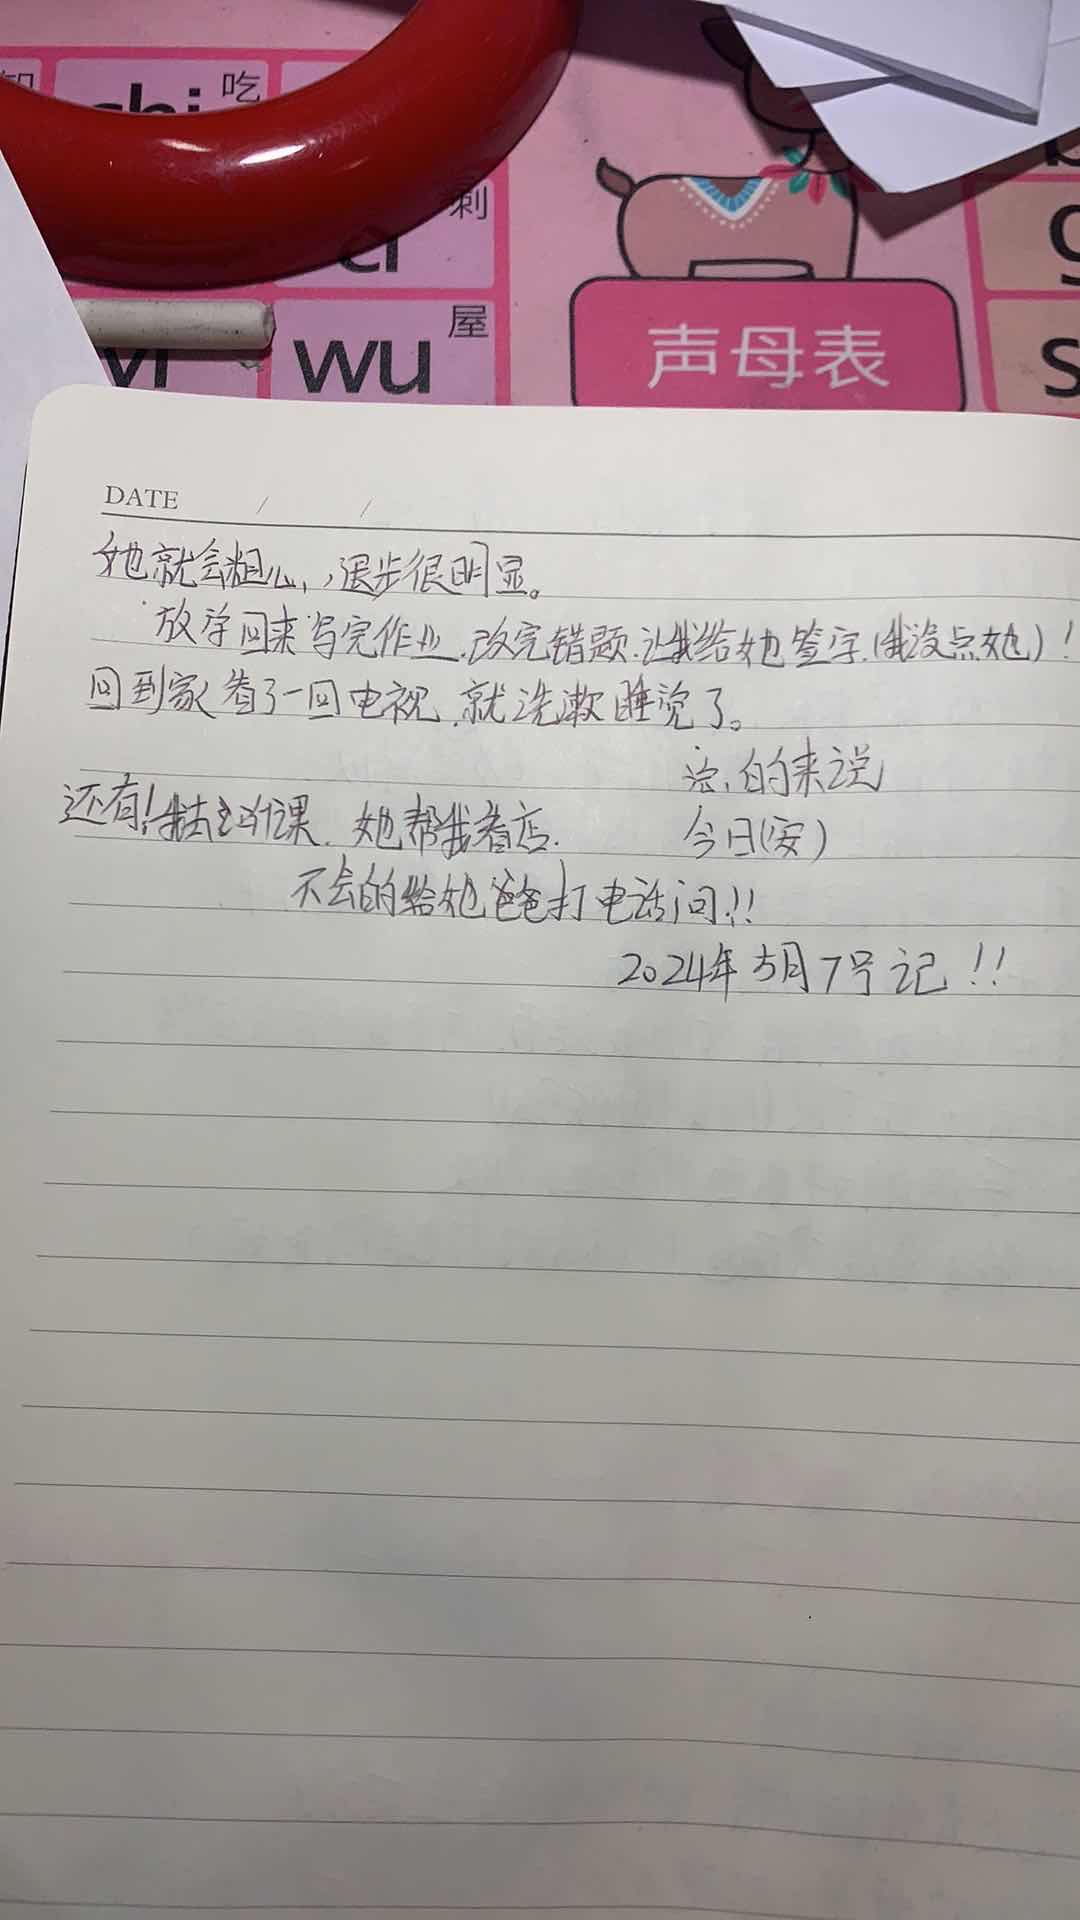 吃
chi
刺
ci
屋
yi
wu
声母表
g
s
DATE / /
她就会粗心,,退步很明显。
放学回来写完作业.改完错题.让我给她签字.(我没点她)!
回到家看了一回电视.就洗漱睡觉了。
总的来说
还有!我去上听课.她帮我看店.
今日(安)
不会的给她爸爸打电话问!!
2024年5月7号记!!